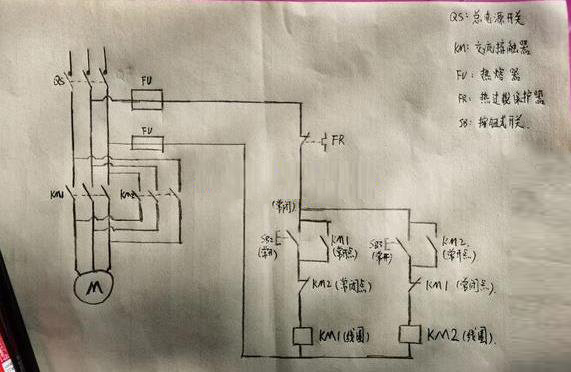 QS: 总电源开关
KM: 交流接触器
FU: 热熔器
FR: 热过载保护器
SB: 按钮式开关.
QS
FU
FU
FR
KM1
KM2
(常闭)
SB2
(常开)
KM1
(常开点)
SB3
(常开)
KM2.
(常开点)
KM2 (常闭点)
KM1 (常闭点).
M
KM1 (线圈)
KM2 (线圈).